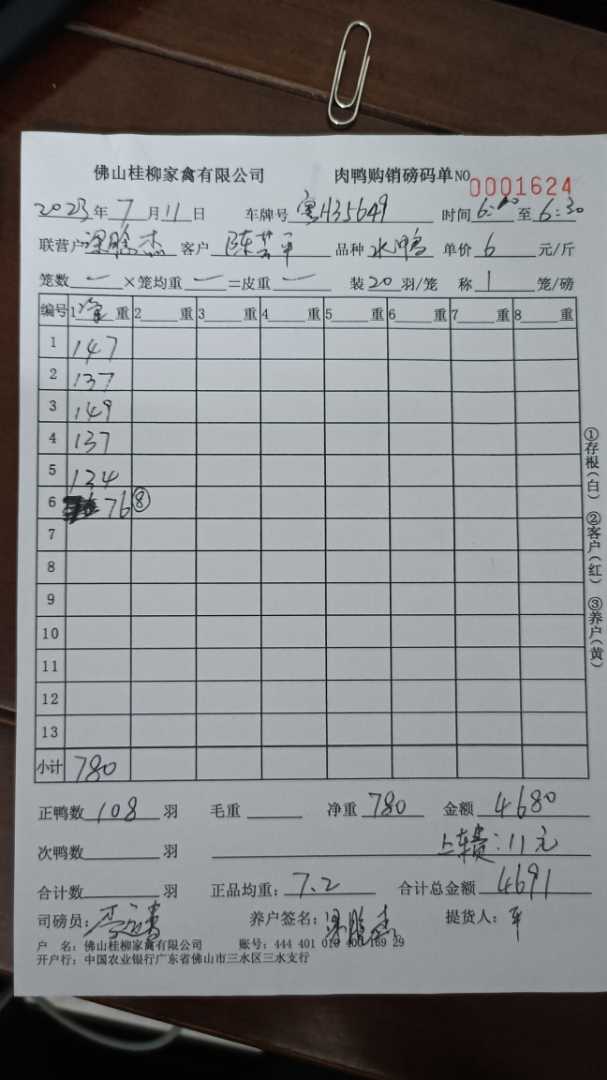 佛山桂柳家禽有限公司 肉鸭购销磅码单 NO 0001624
2023年 7 月 11 日 车牌号 粤H35649 时间 6:00 至 6:30
联营户 梁鹏杰 客户 陈芸平 品种 水鸭 单价 6 元/斤
笼数 一 ×笼均重 一 =皮重 一 装 20 羽/笼 称 1 笼/磅
编号 1 净 重 2 重 3 重 4 重 5 重 6 重 7 重 8 重
1 147
2 137
3 149
4 137
5 134
6 76 ⑧
7
8
9
10
11
12
13
小计 780
①存根(白) ②客户(红) ③养户(黄)
正鸭数 108 羽 毛重 净重 780 金额 4680
次鸭数 羽 上车费:11元
合计数 羽 正品均重: 7.2 合计总金额 4691
司磅员: 养户签名: 梁鹏杰 提货人: 平
户 名: 佛山桂柳家禽有限公司 账号: 444 401 010 400 169 29
开户行: 中国农业银行广东省佛山市三水区三水支行